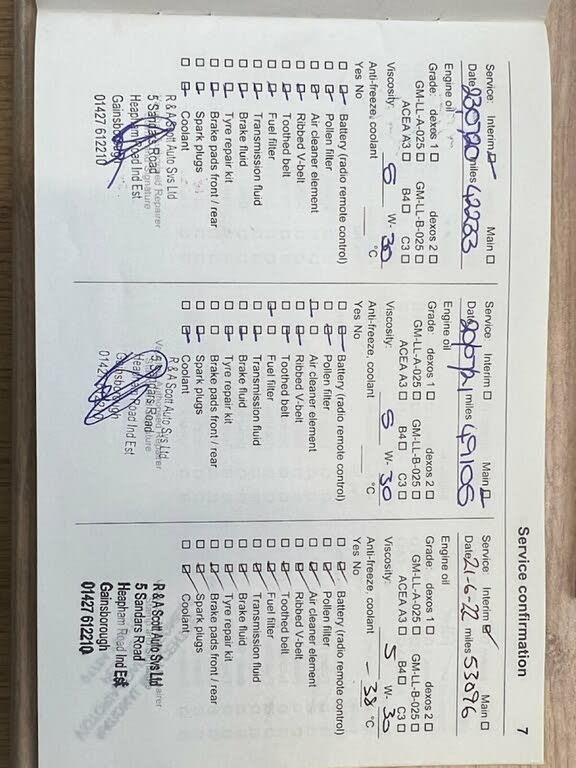 Service confirmation 7
Service: Interim ☑ Main ☐
Date 230720 miles 42233
Engine oil
Grade: dexos 1 ☐ dexos 2 ☐
GM-LL-A-025 ☐ GM-LL-B-025 ☐
ACEA A3 ☐ B4 ☐ C3 ☐
Viscosity: 5 W- 30
Anti-freeze, coolant °C
Yes No
Battery (radio remote control)
Pollen filter
Air cleaner element
Ribbed V-belt
Toothed belt
Fuel filter
Transmission fluid
Brake fluid
Tyre repair kit
Brake pads front / rear
Spark plugs
Coolant
R & A Scott Auto Svs Ltd
5 Sandars Road
Heapham Road Ind Est
Gainsborough
01427 612210
Service: Interim ☐ Main ☑
Date 200721 miles 49106
Engine oil
Grade: dexos 1 ☐ dexos 2 ☐
GM-LL-A-025 ☐ GM-LL-B-025 ☐
ACEA A3 ☐ B4 ☐ C3 ☐
Viscosity: 5 W- 30
Anti-freeze, coolant °C
Yes No
Battery (radio remote control)
Pollen filter
Air cleaner element
Ribbed V-belt
Toothed belt
Fuel filter
Transmission fluid
Brake fluid
Tyre repair kit
Brake pads front / rear
Spark plugs
Coolant
R & A Scott Auto Svs Ltd
5 Sandars Road
Heapham Road Ind Est
Gainsborough
Service: Interim ☑ Main ☐
Date 21-6-22 miles 53096
Engine oil
Grade: dexos 1 ☐ dexos 2 ☐
GM-LL-A-025 ☐ GM-LL-B-025 ☐
ACEA A3 ☐ B4 ☐ C3 ☐
Viscosity: 5 W- 30
Anti-freeze, coolant - 38 °C
Yes No
Battery (radio remote control)
Pollen filter
Air cleaner element
Ribbed V-belt
Toothed belt
Fuel filter
Transmission fluid
Brake fluid
Tyre repair kit
Brake pads front / rear
Spark plugs
Coolant
R & A Scott Auto Svs Ltd
5 Sandars Road
Heapham Road Ind Est
Gainsborough
01427 612210